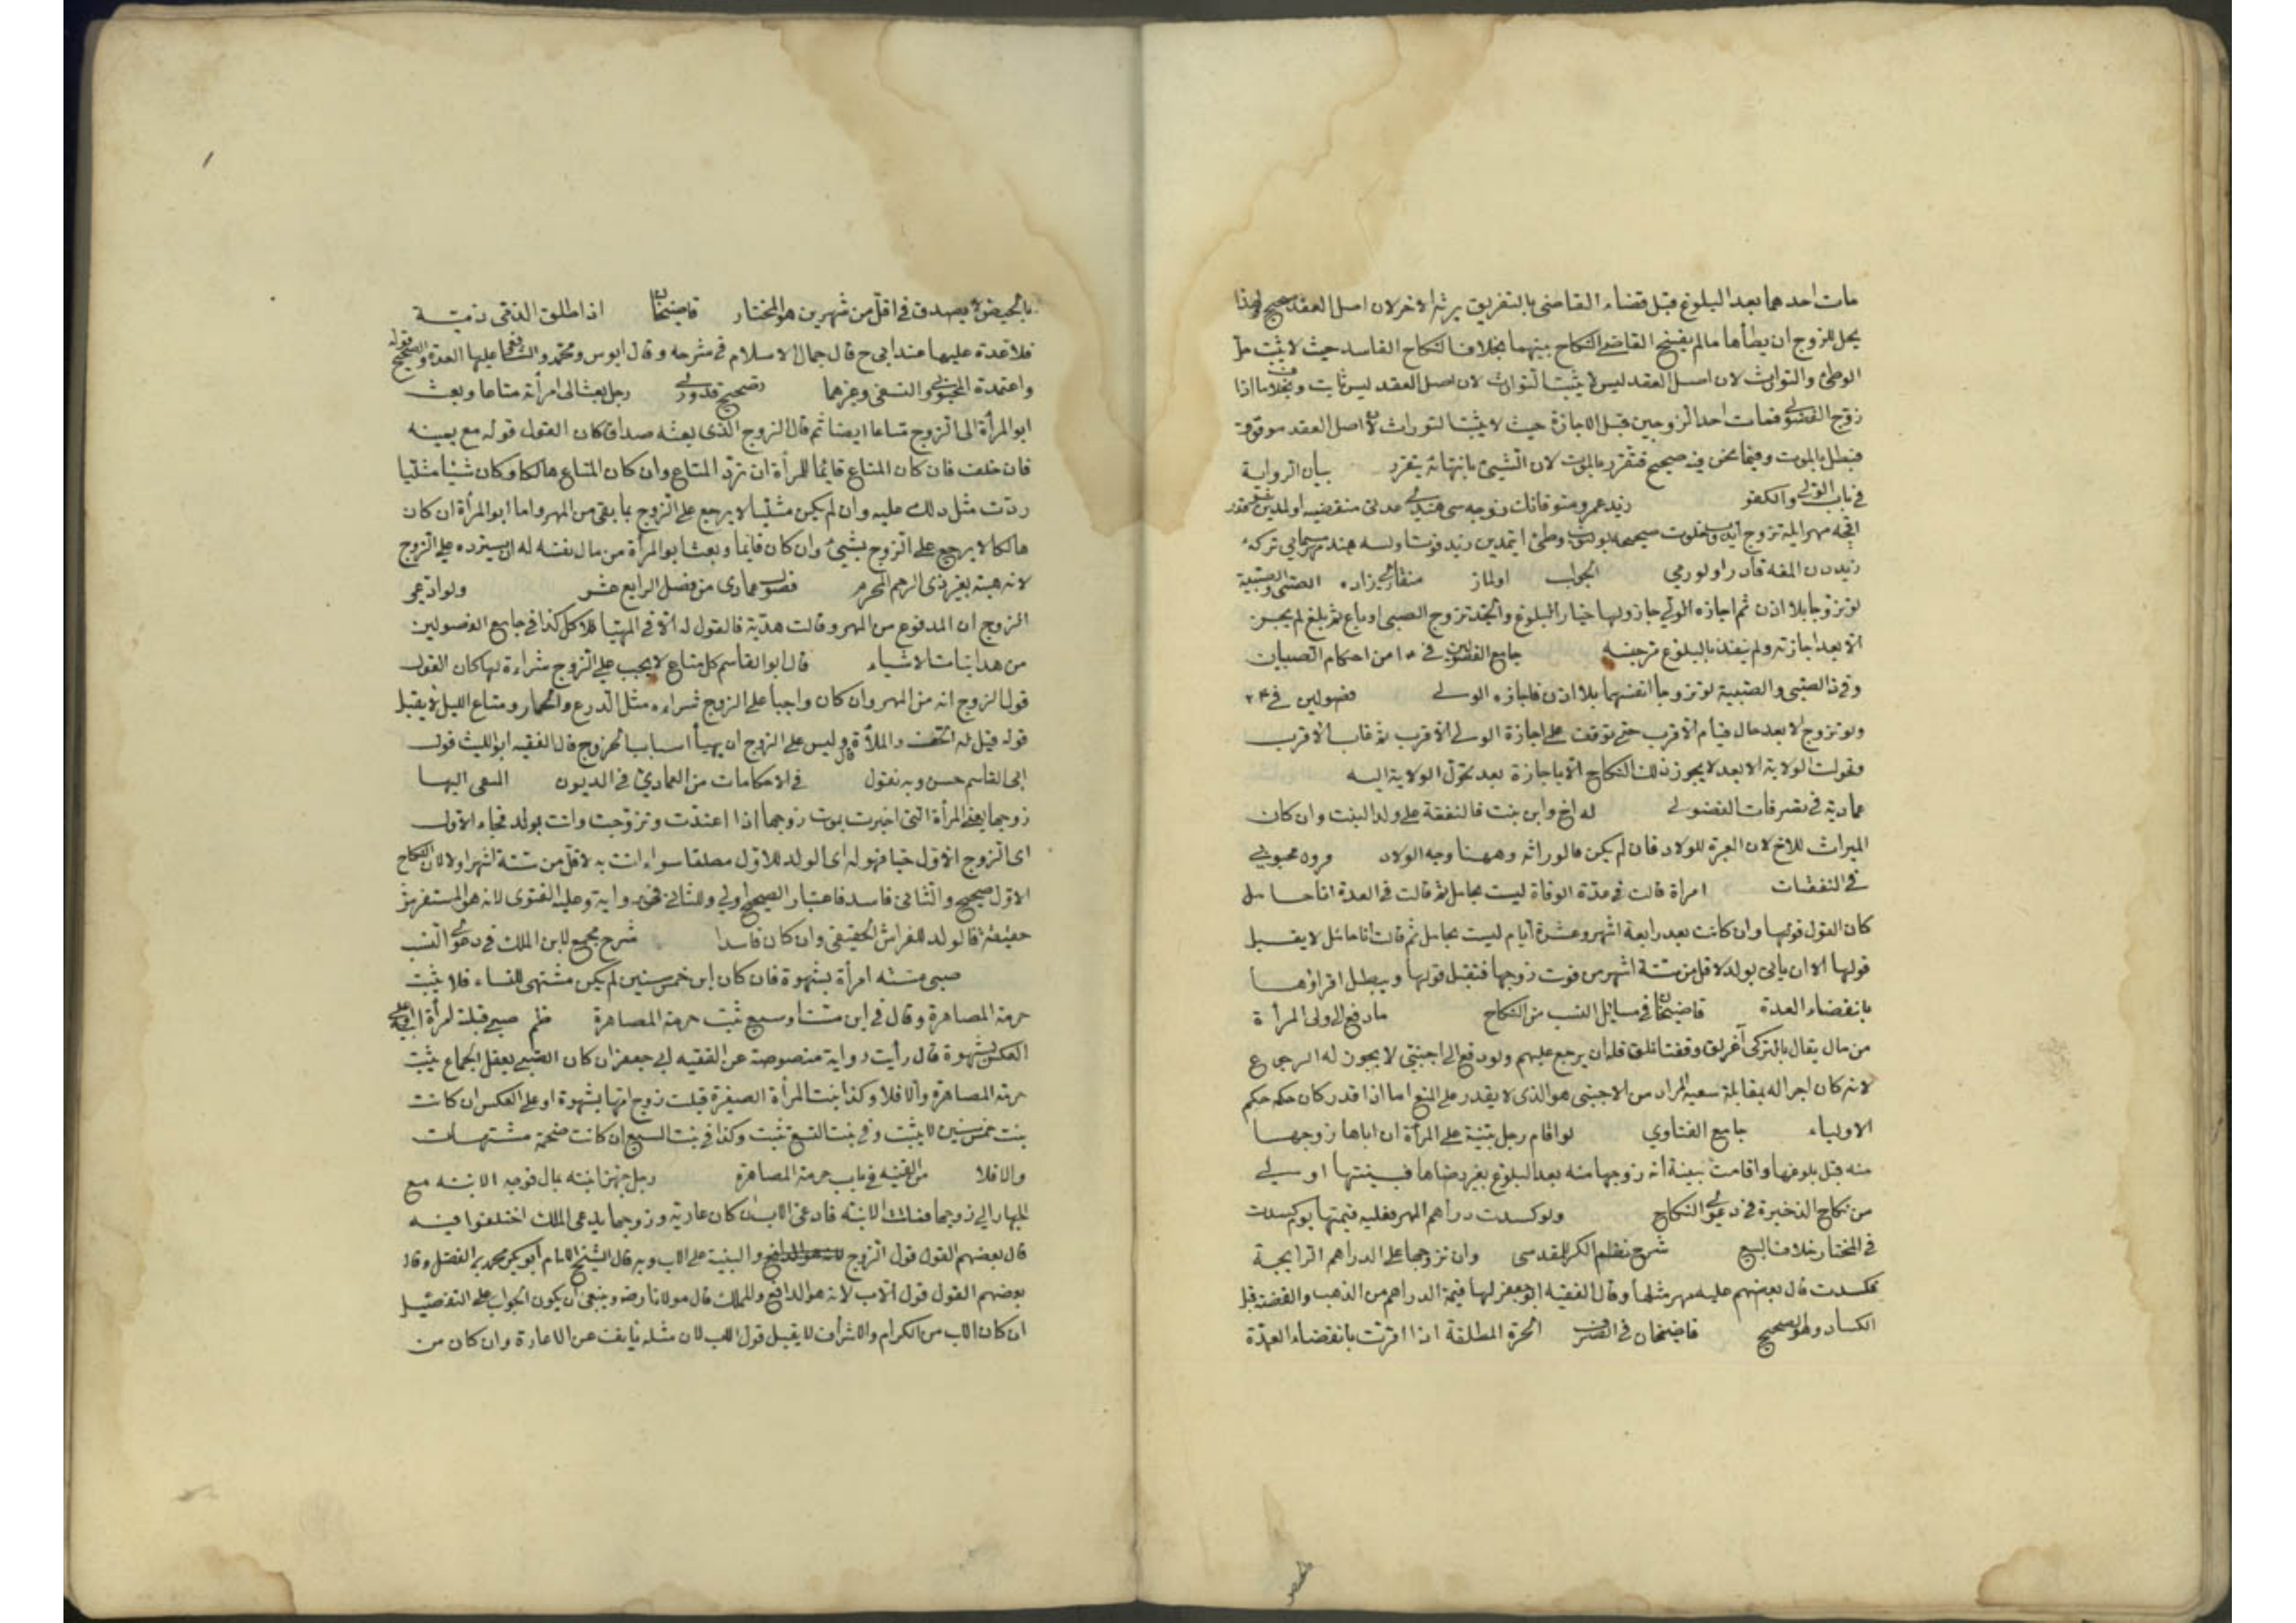 مات احدهما بعد البلوغ قبل قضاء القاضى بالتفريق يرثه الاخر لان اصل العقد صحيح ولهذا
يحل للزوج ان يطأها مالم يفسخ القاضى النكاح بينهما بخلاف النكاح الفاسد حيث لا يثبت حل
الوطئ والتوارث لان اصل العقد ليس يثبت التوارث لان اصل العقد ليس ثابت وبخلاف ما اذا
زوج الفضولى فمات احد الزوجين قبل الاجازة حيث لا يثبت التوارث لان اصل العقد موقوف
فبطل بالموت وفيما نحن فيه صحيح فتقرر بالموت لان الشيئ بانتهائه يتقرر بيان الرواية
فى باب الولى والكفو زيد عمرو متوفانك زوجه سى هندى عدتى منقضيه اولمدين
زيددن المغه قادر اولورمى الجواب اولماز منقارى زاده الصبى والصبية
لو تزوجا بلا اذن ثم اجازه الولى جاز ولها خيار البلوغ والجد تزوج الصبى او باع ثم بلغ لم يجز
الا بعد اجازته ولم ينفذ بالبلوغ جامع الفصولين فى من احكام الصبيان
وفى ذا الصبى والصبية لو تزوجا انفسهما بلا اذن فاجازه الولى فصولين فى ٢٤
ولو تزوج الابعد حال قيام الاقرب حتى توقف على اجازة الولى الاقرب ثم غاب الاقرب
وتحولت الولاية الابعد لا يجوز ذلك النكاح الا باجازة بعد تحول الولاية اليه
عمادية فى تصرفات الفضولى له اخ وابن بنت فالنفقة على ولد البنت وان كان
الميراث للاخ لان العبرة للولاد فان لم يكن فالوراثة وههنا وجه الولاد
فى النفقات امرأة قالت فى عدة الوفاة ليست بحامل ثم قالت فى العدة انا حامل
كان القول قولها وان كانت بعد رابعة اشهر وعشرة ايام ليست بحامل ثم قالت انا حامل لا يقبل
قولها الا ان ياتى بولد لاقل من ستة اشهر من فوت زوجها فتقبل قولها ويبطل اقرارها
بانقضاء العدة قاضيخان فى مسائل النسب من النكاح ما دفع الى ولى المرأة
من مال يقال بالتركى آغرلق وقفتانلق فله ان يرجع عليهم ولو دفع الى اجنبى لا يجوز له الرجوع
لانه كان اجرا له بمقابلة سعيه المراد من الاجنبى هو الذى لا يقدر على المنع اما اذا قدر كان حكمه حكم
الاولياء جامع الفتاوي لو اقام رجل بينة على المرأة ان اباها زوجها
منه قبل بلوغها واقامت بينة انه زوجها منه بعد البلوغ بغير رضاها فبينتها اولى
من نكاح الذخيرة فى دعوى النكاح ولو كسدت دراهم المهر فعليه قيمتها يوم كسدت
فى المختار خلاف البيع شرح نظم الكنز للمقدسى وان تزوجها على الدراهم الرايجة
فكسدت قال بعضهم عليه مهر مثلها وقال الفقيه ابو جعفر لها قيمة الدراهم من الذهب والفضة قبل
الكساد وهو الصحيح قاضيخان فى الصرف الحرة المطلقة اذا اقرت بانقضاء العدة
بالحيض لا يصدق فى اقل من شهرين هو المختار قاضيخان اذا طلق الذمى ذمية
فلا عدة عليها عند ابى ح قال جمال الاسلام فى شرحه وقال ابو س ومحمد والشافعى عليها العدة والصحيح قوله
واعتمدة المحبوبى والنسفى وغيرهما تصحيح قدورى رجل بعث الى امرأته متاعا وبعث
ابو المرأة الى الزوج متاعا ايضا ثم قال الزوج الذى بعثه صداق كان القول قوله مع يمينه
فان حلف فان كان المتاع قائما للمرأة ان ترد المتاع وان كان المتاع هالكا وكان شيئا مثليا
ردت مثل ذلك عليه وان لم يكن مثليا لا يرجع على الزوج بما بقى من المهر واما ابو المرأة ان كان
هالكا لا يرجع على الزوج بشيئ وان كان قائما وبعث ابو المرأة من مال نفسه له ان يسترده على الزوج
لانه هبة بغير ذى الرحم المحرم فصول عمادى من فصل الرابع عشر ولو ادعى
الزوج ان المدفوع من المهر وقالت هدية فالقول له الا فى المهيا للاكل كذا فى جامع الفصولين
من هداية الاشياء قال ابو القاسم كل متاع لا يجب على الزوج شراءه لها كان القول
قول الزوج انه من المهر وان كان واجبا على الزوج شراءه مثل الدرع والخمار ومتاع الليل لا يقبل
قوله قيل له الخف والملأة قال وليس على الزوج ان يهيأ اسباب الخروج قال الفقيه ابو الليث قول
ابى القاسم حسن وبه نقول فى الاحكامات من العمادى فى الديون النعى اليها
زوجها يعنى المرأة التى اخبرت بموت زوجها اذا اعتدت وتزوجت واتت بولد فجاء الاول
اى الزوج الاول حيا فهو له اى الولد للاول مطلقا سواء اتت به لاقل من ستة اشهر او لا لان النكاح
الاول صحيح والثانى فاسد فاعتبار الصحيح اولى وللثانى فى رواية وعليه الفتوى لانه هو المستفرش
حقيقة فالولد للفراش الحقيقى وان كان فاسدا شرح مجمع لابن الملك فى دعوى النسب
صبى مسته امرأة بشهوة فان كان ابن خمس سنين لم يكن مشتهى للنساء فلا يثبت
حرمة المصاهرة وقال فى ابن ست او سبع ثبت حرمة المصاهرة ظم صبى قبلة امرأة ابيه او على
العكس بشهوة قال رأيت رواية منصوصة عن الفقيه ابى جعفر ان كان الصبى يعقل الجماع يثبت
حرمة المصاهرة والا فلا وكذا بنت المرأة الصغيرة قبلت زوج امها بشهوة او على العكس ان كانت
بنت خمس سنين لا يثبت وفى بنت التسع ثبت وكذا فى بنت السبع ان كانت ضخمة مشتهات
والا فلا من القنيه فى باب حرمة المصاهرة رجل جهز ابنته بمال فوجه الابنة مع
الجهاز الى زوجها فماتت الابنة فادعى الاب ان كان عارية وزوجها يدعى الملك اختلفوا فيه
قال بعضهم القول قول الزوج والبينة على الاب وبه قال الشيخ الامام ابو بكر محمد بن الفضل وقال
بعضهم القول قول الاب لانه هو الدافع والمملك قال مولانا رضه وينبغى ان يكون الجواب على التفصيل
ان كان الاب من الكرام والاشراف لا يقبل قول الاب لان مثله يأنف عن الاعارة وان كان من